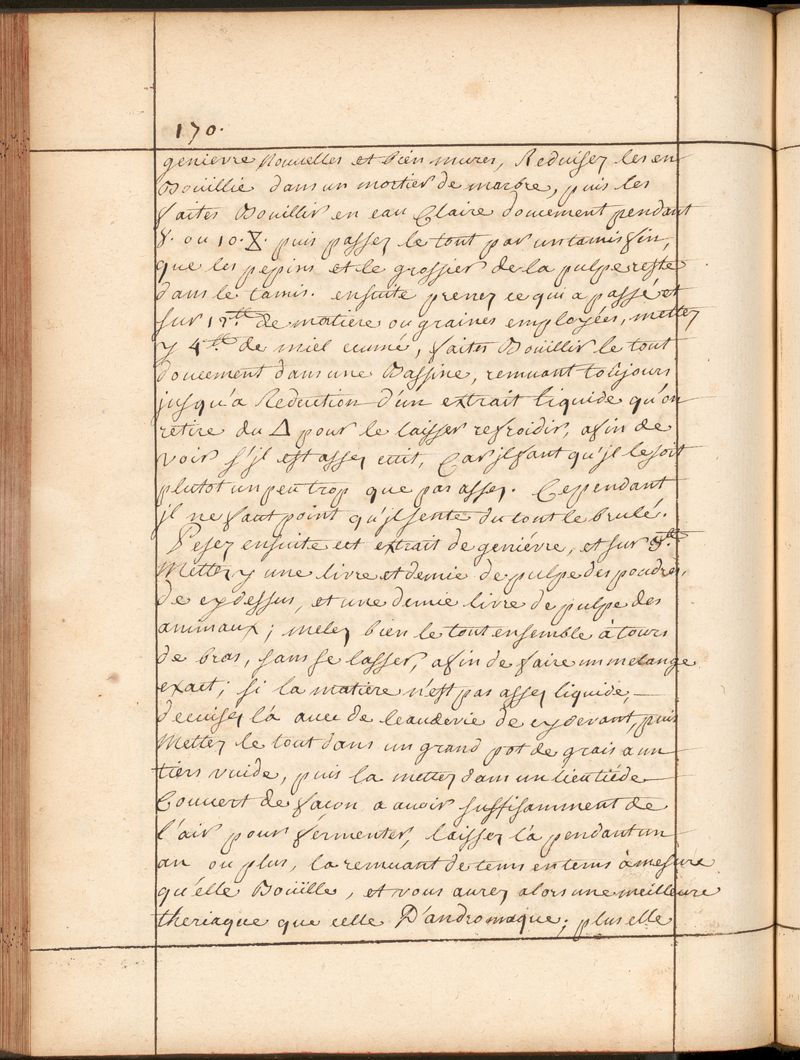 170.
genievre Nouvelles et bien mures, Reduisez les en
Boüillie dans un mortier de marbre, puis les
faites Boüillir en eau Claire doucement pendant
8. ou 10. ⧖. puis passez le tout par un tamis fin,
que les pepins et le grossier de la pulpe reste
dans le tamis. ensuite prenez ce qui a passé et
sur 12.ᵗᵗ de matiere ou graines employées, mettez
y 4.ᵗᵗ de miel ecumé, faites Boüillir le tout
doucement dans une Bassine, remuant toûjours
jusqu'a Reduction d'un extrait liquide qu'on
retire du △ pour le laisser refroidir, afin de
voir s'jl est assez cuit, Car jl faut qu'jl le soit
plutot un peu trop que pas assez. Cependant
jl ne faut point qu'jl sente du tout le brulé.
Pesez ensuite cet extrait de geniévre, et sur 8.ᵗᵗ
Mettez y une livre et demie de pulpe des poudres,
de cydessus, et une demie livre de pulpe des
animaux; melez bien le tout ensemble à tours
de bras, sans se lasser, afin de faire un melange
exact; si la matiere n'est pas assez liquide,
decuisez là avec de leaudevie de cydevant, puis
Mettez le tout dans un grand pot de grais a un
tiers vuide, puis la mettez dans un lieu tiéde
Couvert de façon a avoir suffisamment de
l'air pour fermenter, laissez l'à pendant un
an ou plus, la remuant de tems en tems à mesure
qu'elle Boüille, et vous aurez alors une meilleure
theriaque que celle D'andromaque; plus elle